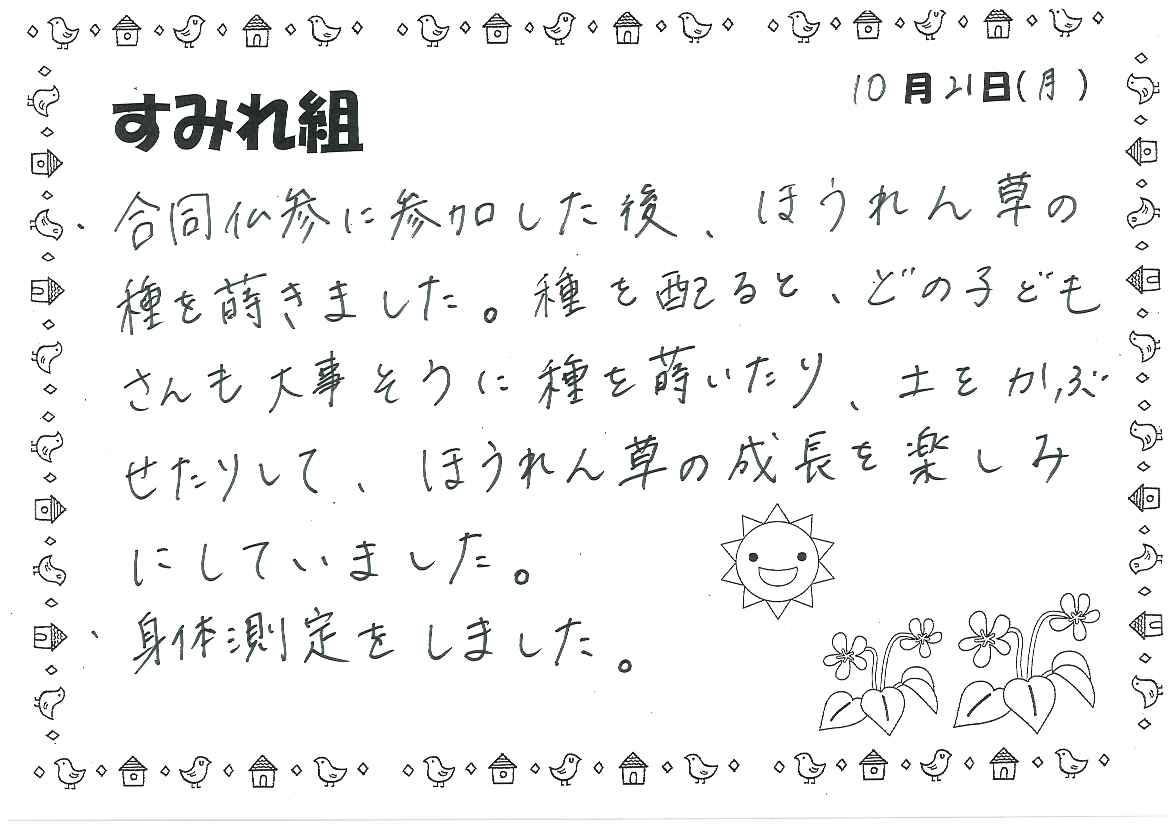 10月21日(月)
すみれ組
・合同仏参に参加した後、ほうれん草の
種を蒔きました。種を配ると、どの子ども
さんも大事そうに種を蒔いたり、土をかぶ
せたりして、ほうれん草の成長を楽しみ
にしていました。
・身体測定をしました。